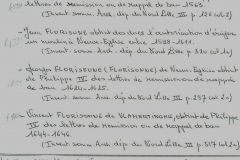 lettres de rémission ou de rappel de ban 1563.
(Invent. somm. Arch. dép. du Nord Lille III p. 126 col. 2)
- Jean FLORISONE obtint des ducs l'autorisation d'ériger
un moulin à Neuve-Eglise entre 1598-1611.
(Invent. somm. Arch. dép. du Nord Lille III p. 320 col. 1a)
- Josephe FLORISEUNE (FLORISONE) de Neuve-Eglise obtint
de Philippe IV des lettres de rémission ou de rappel de
ban 1624-1625.
(Invent. somm. Arch. dép. du Nord Lille III p. 237 col. 2a)
- Vincent FLORISONNE de VLAMERTINGHE, obtint de Philippe
IV des lettres de rémission ou de rappel de ban
1644-1646.
(Invent. somm. Arch. dép. du Nord Lille III p. 317 col. 1a)